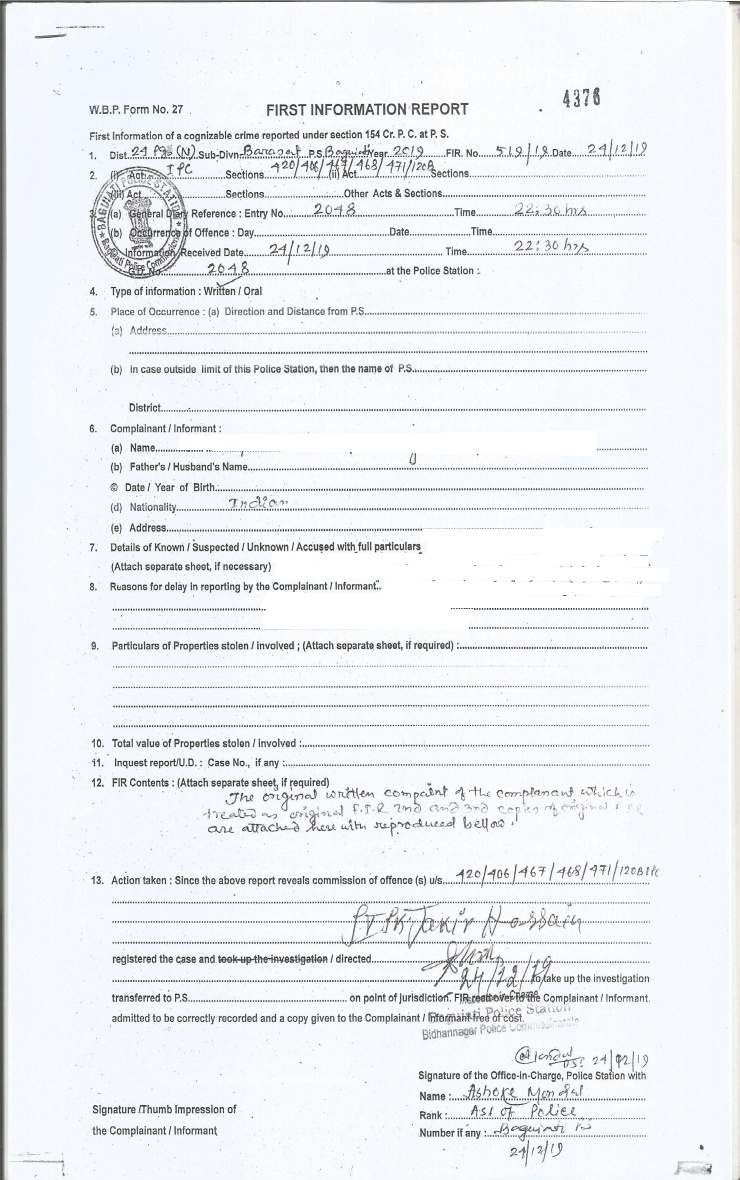 4376
W.B.P. Form No. 27 FIRST INFORMATION REPORT
First Information of a cognizable crime reported under section 154 Cr. P. C. at P. S.
1. Dist. 24 PGS (N) Sub-Divn. Barasat P.S. Baguiati Year 2019 FIR. No. 519/19 Date 24/12/19
2. (i) Act IPC Sections 420/406/467/468/471/120B (ii) Act Sections
(iii) Act Sections Other Acts & Sections
3. (a) General Diary Reference : Entry No. 2048 Time 22:30 hrs
(b) Occurrence of Offence : Day Date Time
Information Received Date 24/12/19 Time 22:30 hrs
G.D. No. 2048 at the Police Station :
BAGUIATI POLICE STATION
4. Type of information : Written / Oral
5. Place of Occurrence : (a) Direction and Distance from P.S.
(a) Address
(b) In case outside limit of this Police Station, then the name of P.S.
District
6. Complainant / Informant :
(a) Name
(b) Father's / Husband's Name
© Date / Year of Birth
(d) Nationality Indian
(e) Address
7. Details of Known / Suspected / Unknown / Accused with full particulars
(Attach separate sheet, if necessary)
8. Reasons for delay in reporting by the Complainant / Informant
9. Particulars of Properties stolen / involved ; (Attach separate sheet, if required) :
10. Total value of Properties stolen / involved :
11. Inquest report/U.D. : Case No., if any :
12. FIR Contents : (Attach separate sheet, if required)
The original written compaint of the complanant which is
treated as original F.I.R 2nd and 3nd copies of original FIR
are attached here with reproduced bellow.
13. Action taken : Since the above report reveals commission of offence (s) u/s 420/406/467/468/471/120B IPC
Hossain
registered the case and took up the investigation / directed
24/12/19 to take up the investigation
transferred to P.S. on point of jurisdiction. FIR read over to the Complainant / Informant.
admitted to be correctly recorded and a copy given to the Complainant / Informant free of cost.
Baguiati Police Station
Bidhannagar Police Commissionerate
24/12/19
Signature of the Office-in-Charge, Police Station with
Name : Ashoke Mondal
Signature /Thumb Impression of
Rank : ASI of Police
the Complainant / Informant
Number if any : Baguiati PS
24/12/19